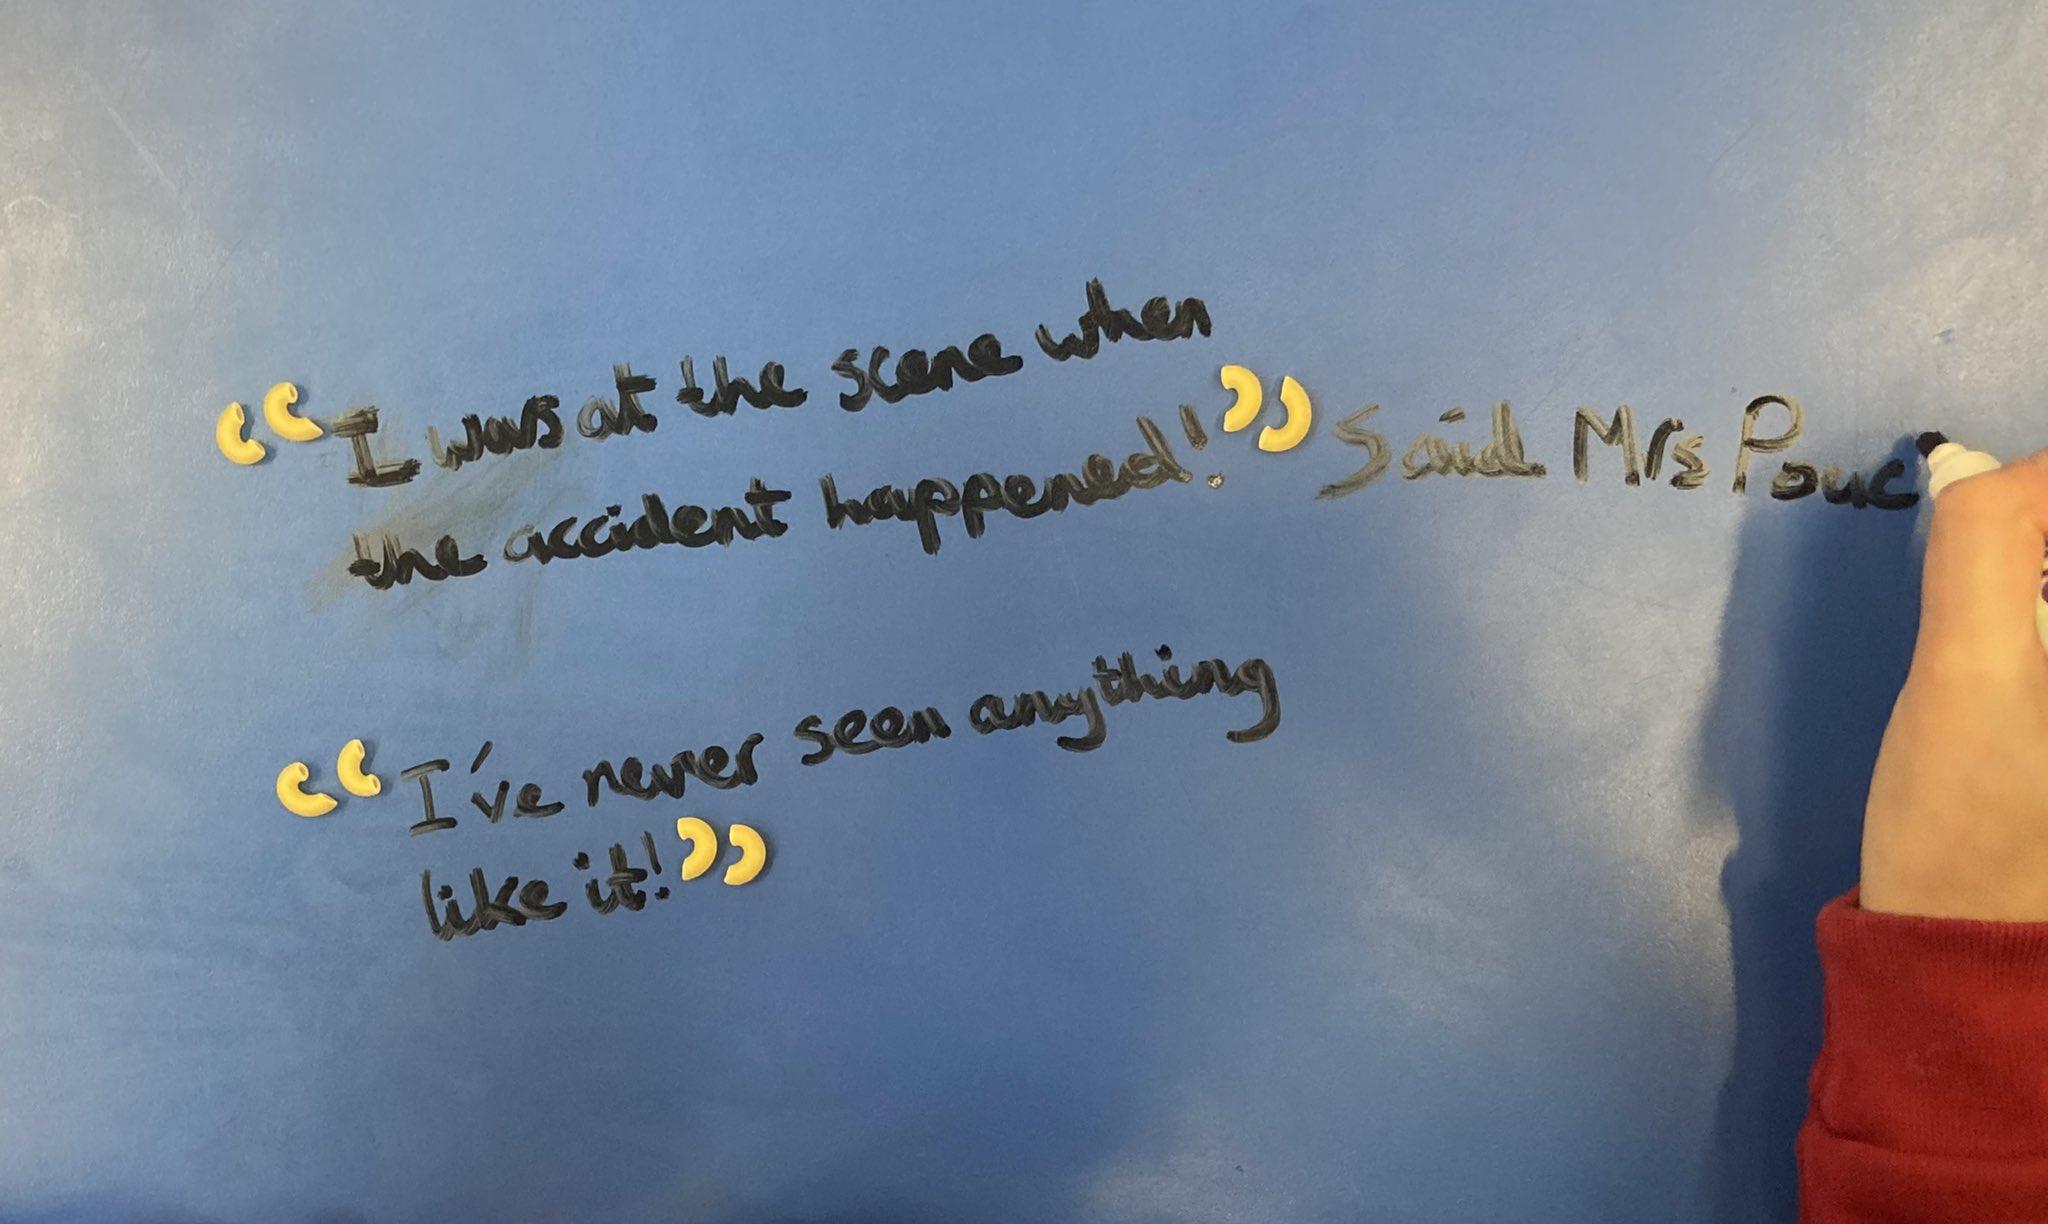 “I was at the scene when
the accident happened!” Said Mrs Pouc
“I've never seen anything
like it!”